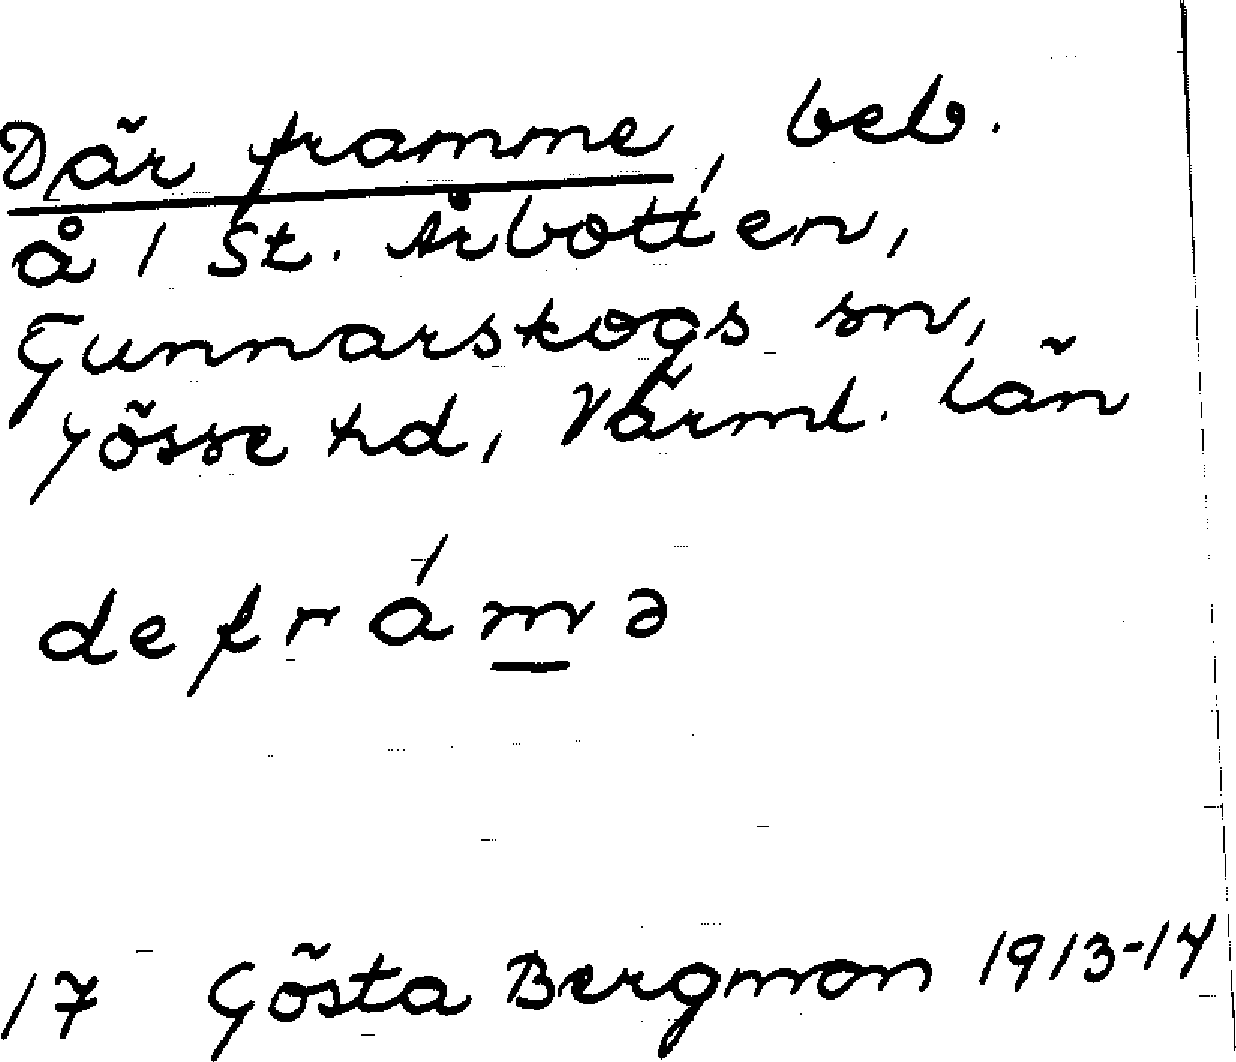 Där framme, beb.
å 1 St. Årbotten,
Gunnarskogs sn,
Jösse hd, Värml. län
de frámə
17 Gösta Bergman 1913-14